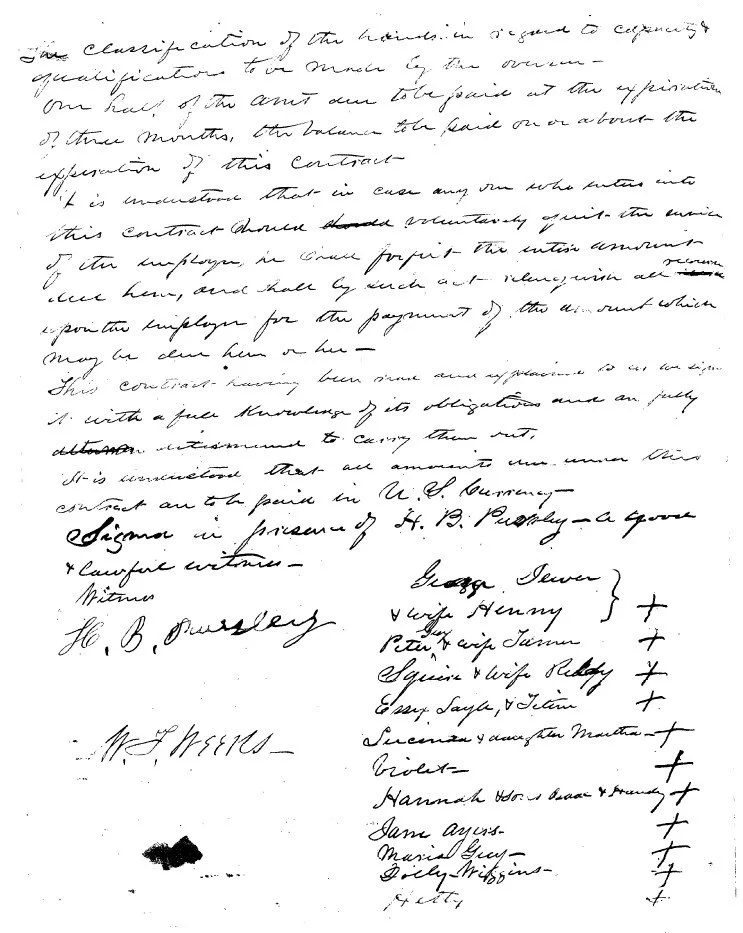 The classification of the hands in regard to capacity &
qualifications to be made by the overseer —
One half of the amt due to be paid at the expiration
of three months, the balance to be paid on or about the
expiration of this contract
It is understood that in case any one who enters into
this contract should voluntarily quit the service
of the employer, he shall forfeit the entire amount
due him, and shall by such act relinquish all recourse
upon the employer for the payment of the amount which
may be due him or her —
This contract having been read and explained to us we sign
it with a full knowledge of its obligations and are fully
determined to carry them out.
It is understood that all amounts due under this
contract are to be paid in U. S. Currency —
Signed in presence of H. B. Pursley — a good
& lawful witness —
Witness
H. B. Pursley
W. F. Weeks —
George Dewer
& wife Henny } +
Peter Guy & wife Turner +
Squire & wife +
Essex Sayle, & +
Lucinda & daughter Martha — +
Violet — +
Hannah & sons Isaac & Handy +
Jane Ayers — +
Maria Guy — +
Dolly Wiggins — +
Hetty +